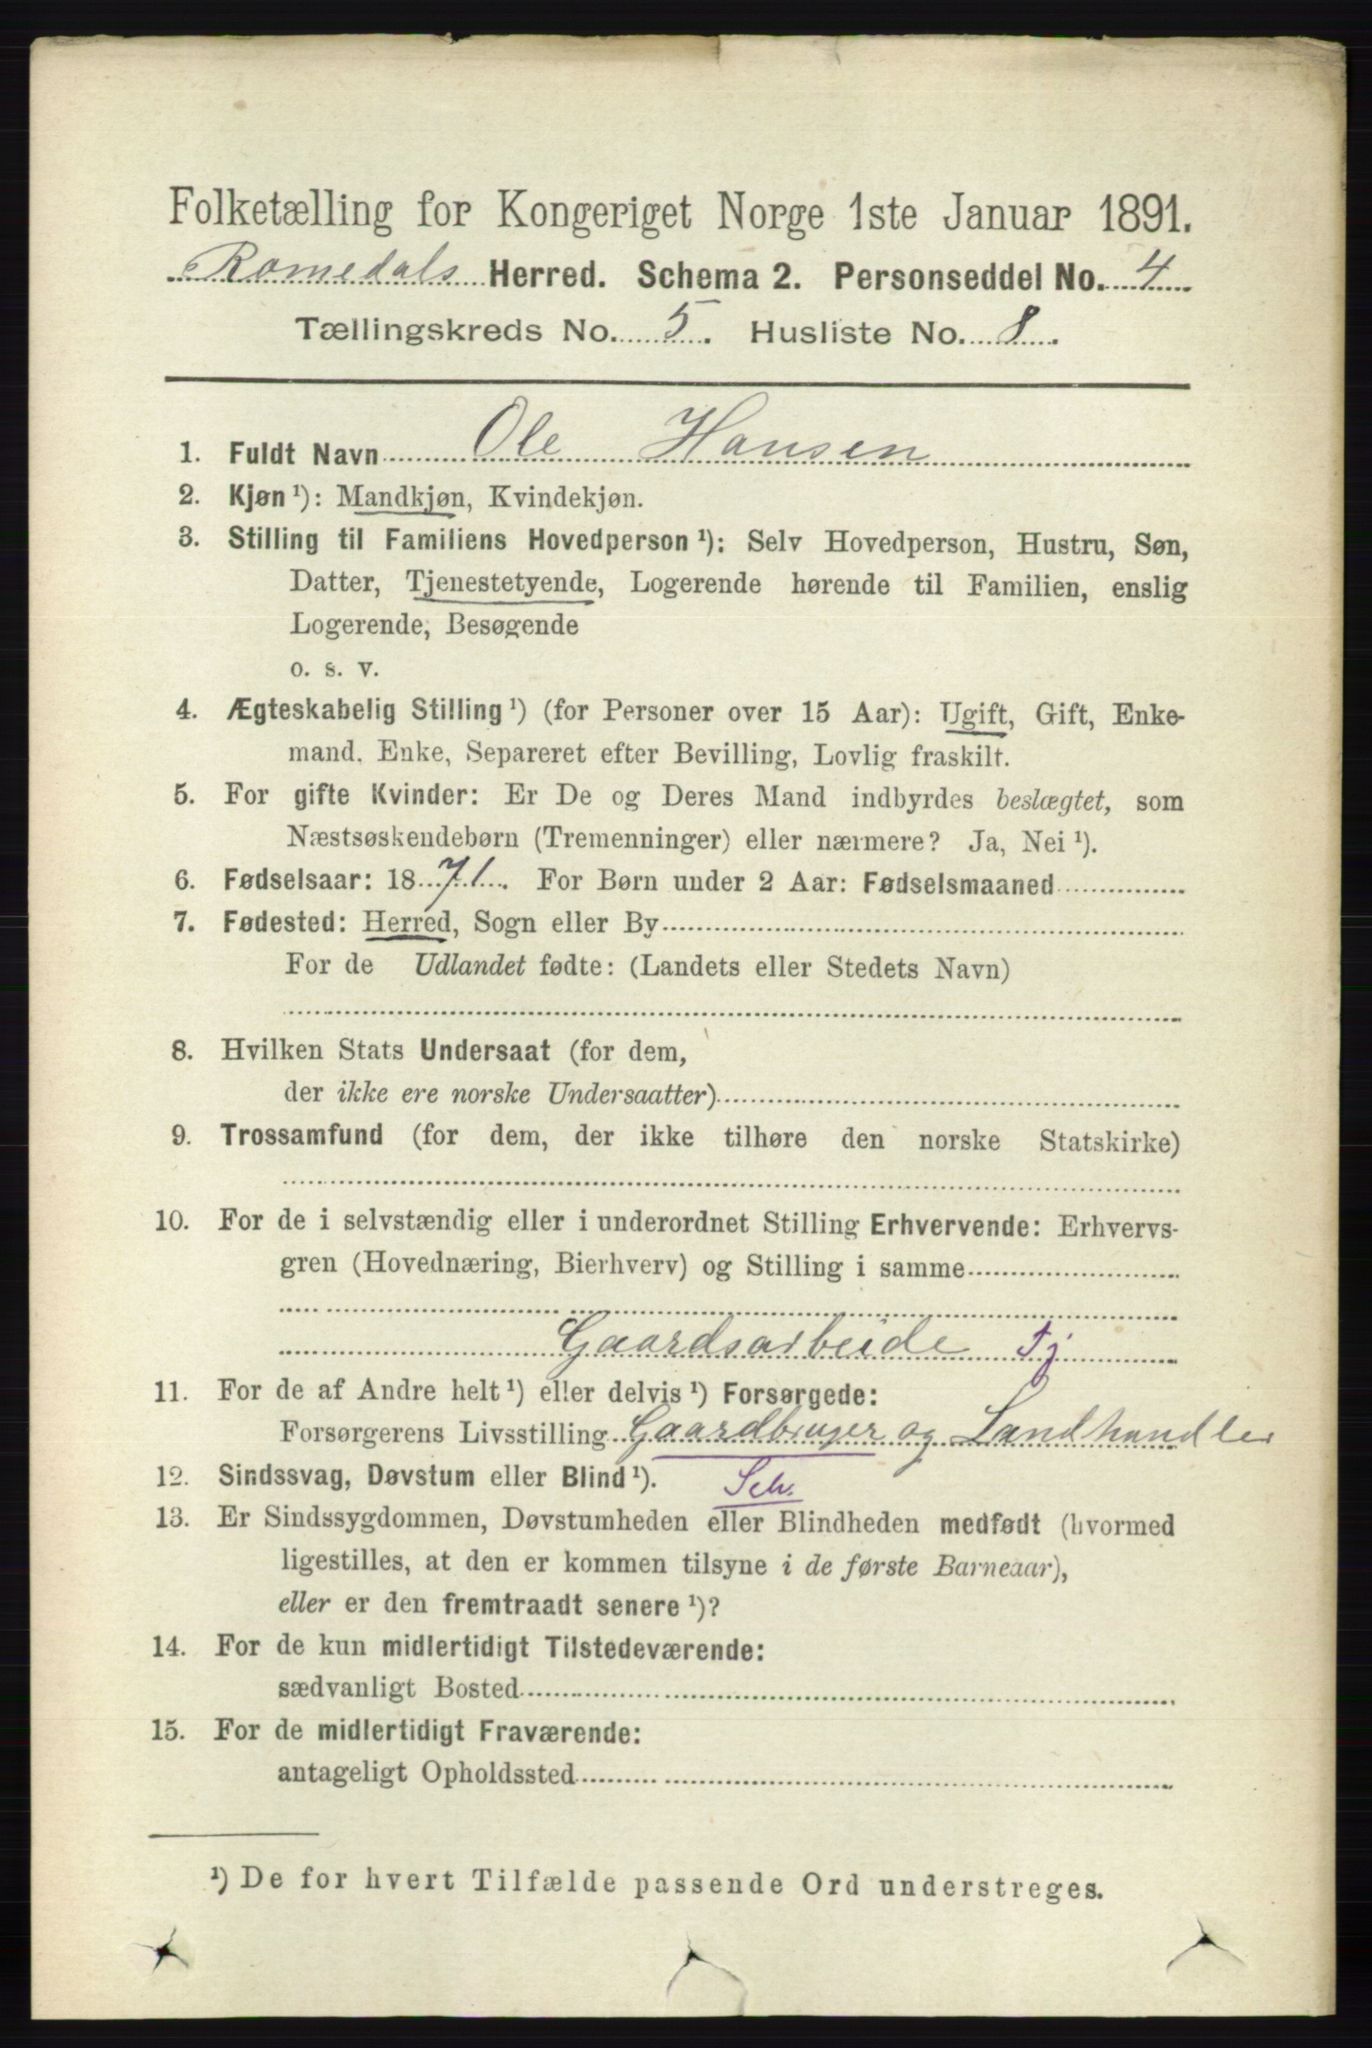 Folketælling for Kongeriget Norge 1ste Januar 1891.
Romedals Herred. Schema 2. Personseddel No. 4
Tællingskreds No. 5. Husliste No. 8.
1. Fuldt Navn Ole Hansen
2. Kjøn ¹): Mandkjøn, Kvindekjøn.
3. Stilling til Familiens Hovedperson ¹): Selv Hovedperson, Hustru, Søn,
Datter, Tjenestetyende, Logerende hørende til Familien, enslig
Logerende, Besøgende
o. s. v.
4. Ægteskabelig Stilling ¹) (for Personer over 15 Aar): Ugift, Gift, Enke-
mand, Enke, Separeret efter Bevilling, Lovlig fraskilt.
5. For gifte Kvinder: Er De og Deres Mand indbyrdes beslægtet, som
Næstsøskendebørn (Tremenninger) eller nærmere? Ja, Nei ¹).
6. Fødselsaar: 1871. For Børn under 2 Aar: Fødselsmaaned
7. Fødested: Herred, Sogn eller By
For de Udlandet fødte: (Landets eller Stedets Navn)
8. Hvilken Stats Undersaat (for dem,
der ikke ere norske Undersaatter)
9. Trossamfund (for dem, der ikke tilhøre den norske Statskirke)
10. For de i selvstændig eller i underordnet Stilling Erhvervende: Erhvervs-
gren (Hovednæring, Bierhverv) og Stilling i samme
Gaardsarbeide Tj
11. For de af Andre helt ¹) eller delvis ¹) Forsørgede:
Forsørgerens Livsstilling Gaardbruger og Landhandler
12. Sindssvag, Døvstum eller Blind ¹). Selv.
13. Er Sindssygdommen, Døvstumheden eller Blindheden medfødt (hvormed
ligestilles, at den er kommen tilsyne i de første Barneaar),
eller er den fremtraadt senere ¹)?
14. For de kun midlertidigt Tilstedeværende:
sædvanligt Bosted
15. For de midlertidigt Fraværende:
antageligt Opholdssted
¹) De for hvert Tilfælde passende Ord understreges.